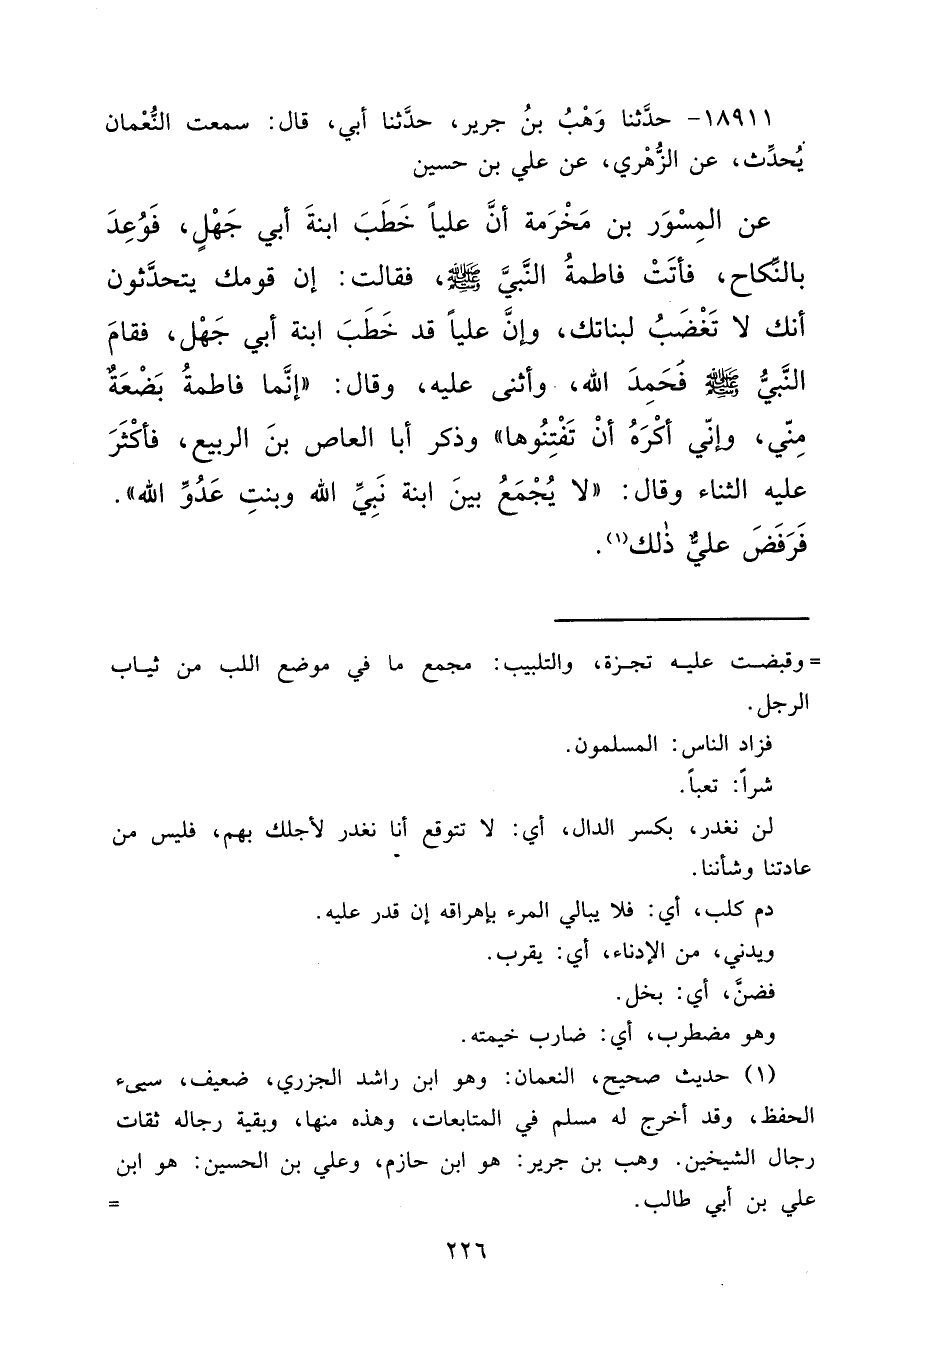 ١٨٩١١- حدَّثنا وَهْبُ بنُ جرير، حدَّثنا أبي، قال: سمعت النُّعْمان
يُحدِّث، عن الزُّهْري، عن علي بن حسين
عن المِسْوَر بن مَخْرَمة أنَّ علياً خَطَبَ ابنةَ أبي جَهْلٍ، فَوُعِدَ
بالنِّكاح، فأتَتْ فاطمةُ النَّبيَّ ﷺ، فقالت: إن قومك يتحدَّثون
أنك لا تَغْضَبُ لبناتك، وإنَّ علياً قد خَطَبَ ابنة أبي جَهْل، فقامَ
النَّبيُّ ﷺ فَحَمِدَ الله، وأثنى عليه، وقال: «إنَّما فاطمةُ بَضْعَةٌ
مِنّي، وإنّي أكْرَهُ أنْ تَفْتِنُوها» وذكر أبا العاص بنَ الربيع، فأكْثَرَ
عليه الثناء وقال: «لا يُجْمَعُ بينَ ابنة نَبِيِّ الله وبنتِ عَدُوِّ الله».
فَرَفَضَ عليٌّ ذٰلك(١).
= وقبضت عليه تجزة، والتلبيب: مجمع ما في موضع اللب من ثياب
الرجل.
فزاد الناس: المسلمون.
شراً: تعباً.
لن نغدر، بكسر الدال، أي: لا تتوقع أنا نغدر لأجلك بهم، فليس من
عادتنا وشأننا.
دم كلب، أي: فلا يبالي المرء بإهراقه إن قدر عليه.
ويدني، من الإدناء، أي: يقرب.
فضنَّ، أي: بخل.
وهو مضطرب، أي: ضارب خيمته.
(١) حديث صحيح، النعمان: وهو ابن راشد الجزري، ضعيف، سيىء
الحفظ، وقد أخرج له مسلم في المتابعات، وهذه منها، وبقية رجاله ثقات
رجال الشيخين. وهب بن جرير: هو ابن حازم، وعلي بن الحسين: هو ابن
علي بن أبي طالب. =
٢٢٦